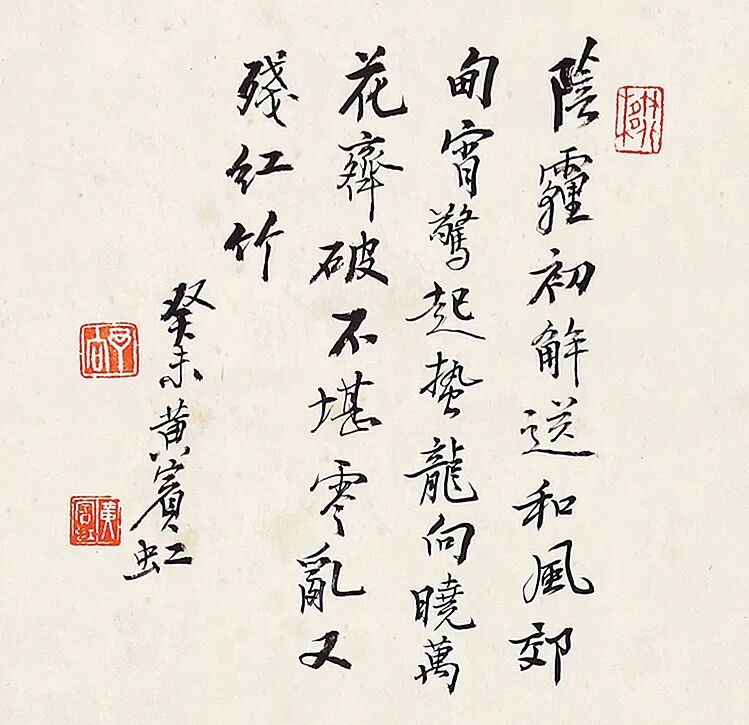 陰霾初解送和風郊
甸宵驚起蟄龍向曉萬
花齊破不堪零亂又
殘紅竹
癸未黃賓虹